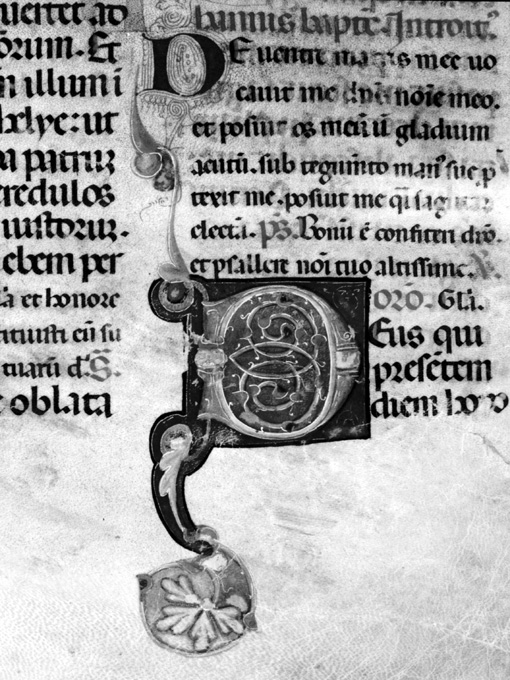 uertet ad
orum. Et
n illumi
helye: ut
da patruz
credulos
iustorum.
ebem per
et honore
tituisti eu su
tuaru d. S.
oblata
hannis bapte. Introit.
DE uentre matris mee uo
cauit me dns noie meo.
et posuit os meu ut gladium
acutu. sub tegumto man sue p
texit me. posuit me qi sagitta
electa. ps. Bonu e confiteri dno.
et psallere noi tuo altissime. R.
oro. Gla.
Deus qui
presetem
diem hono